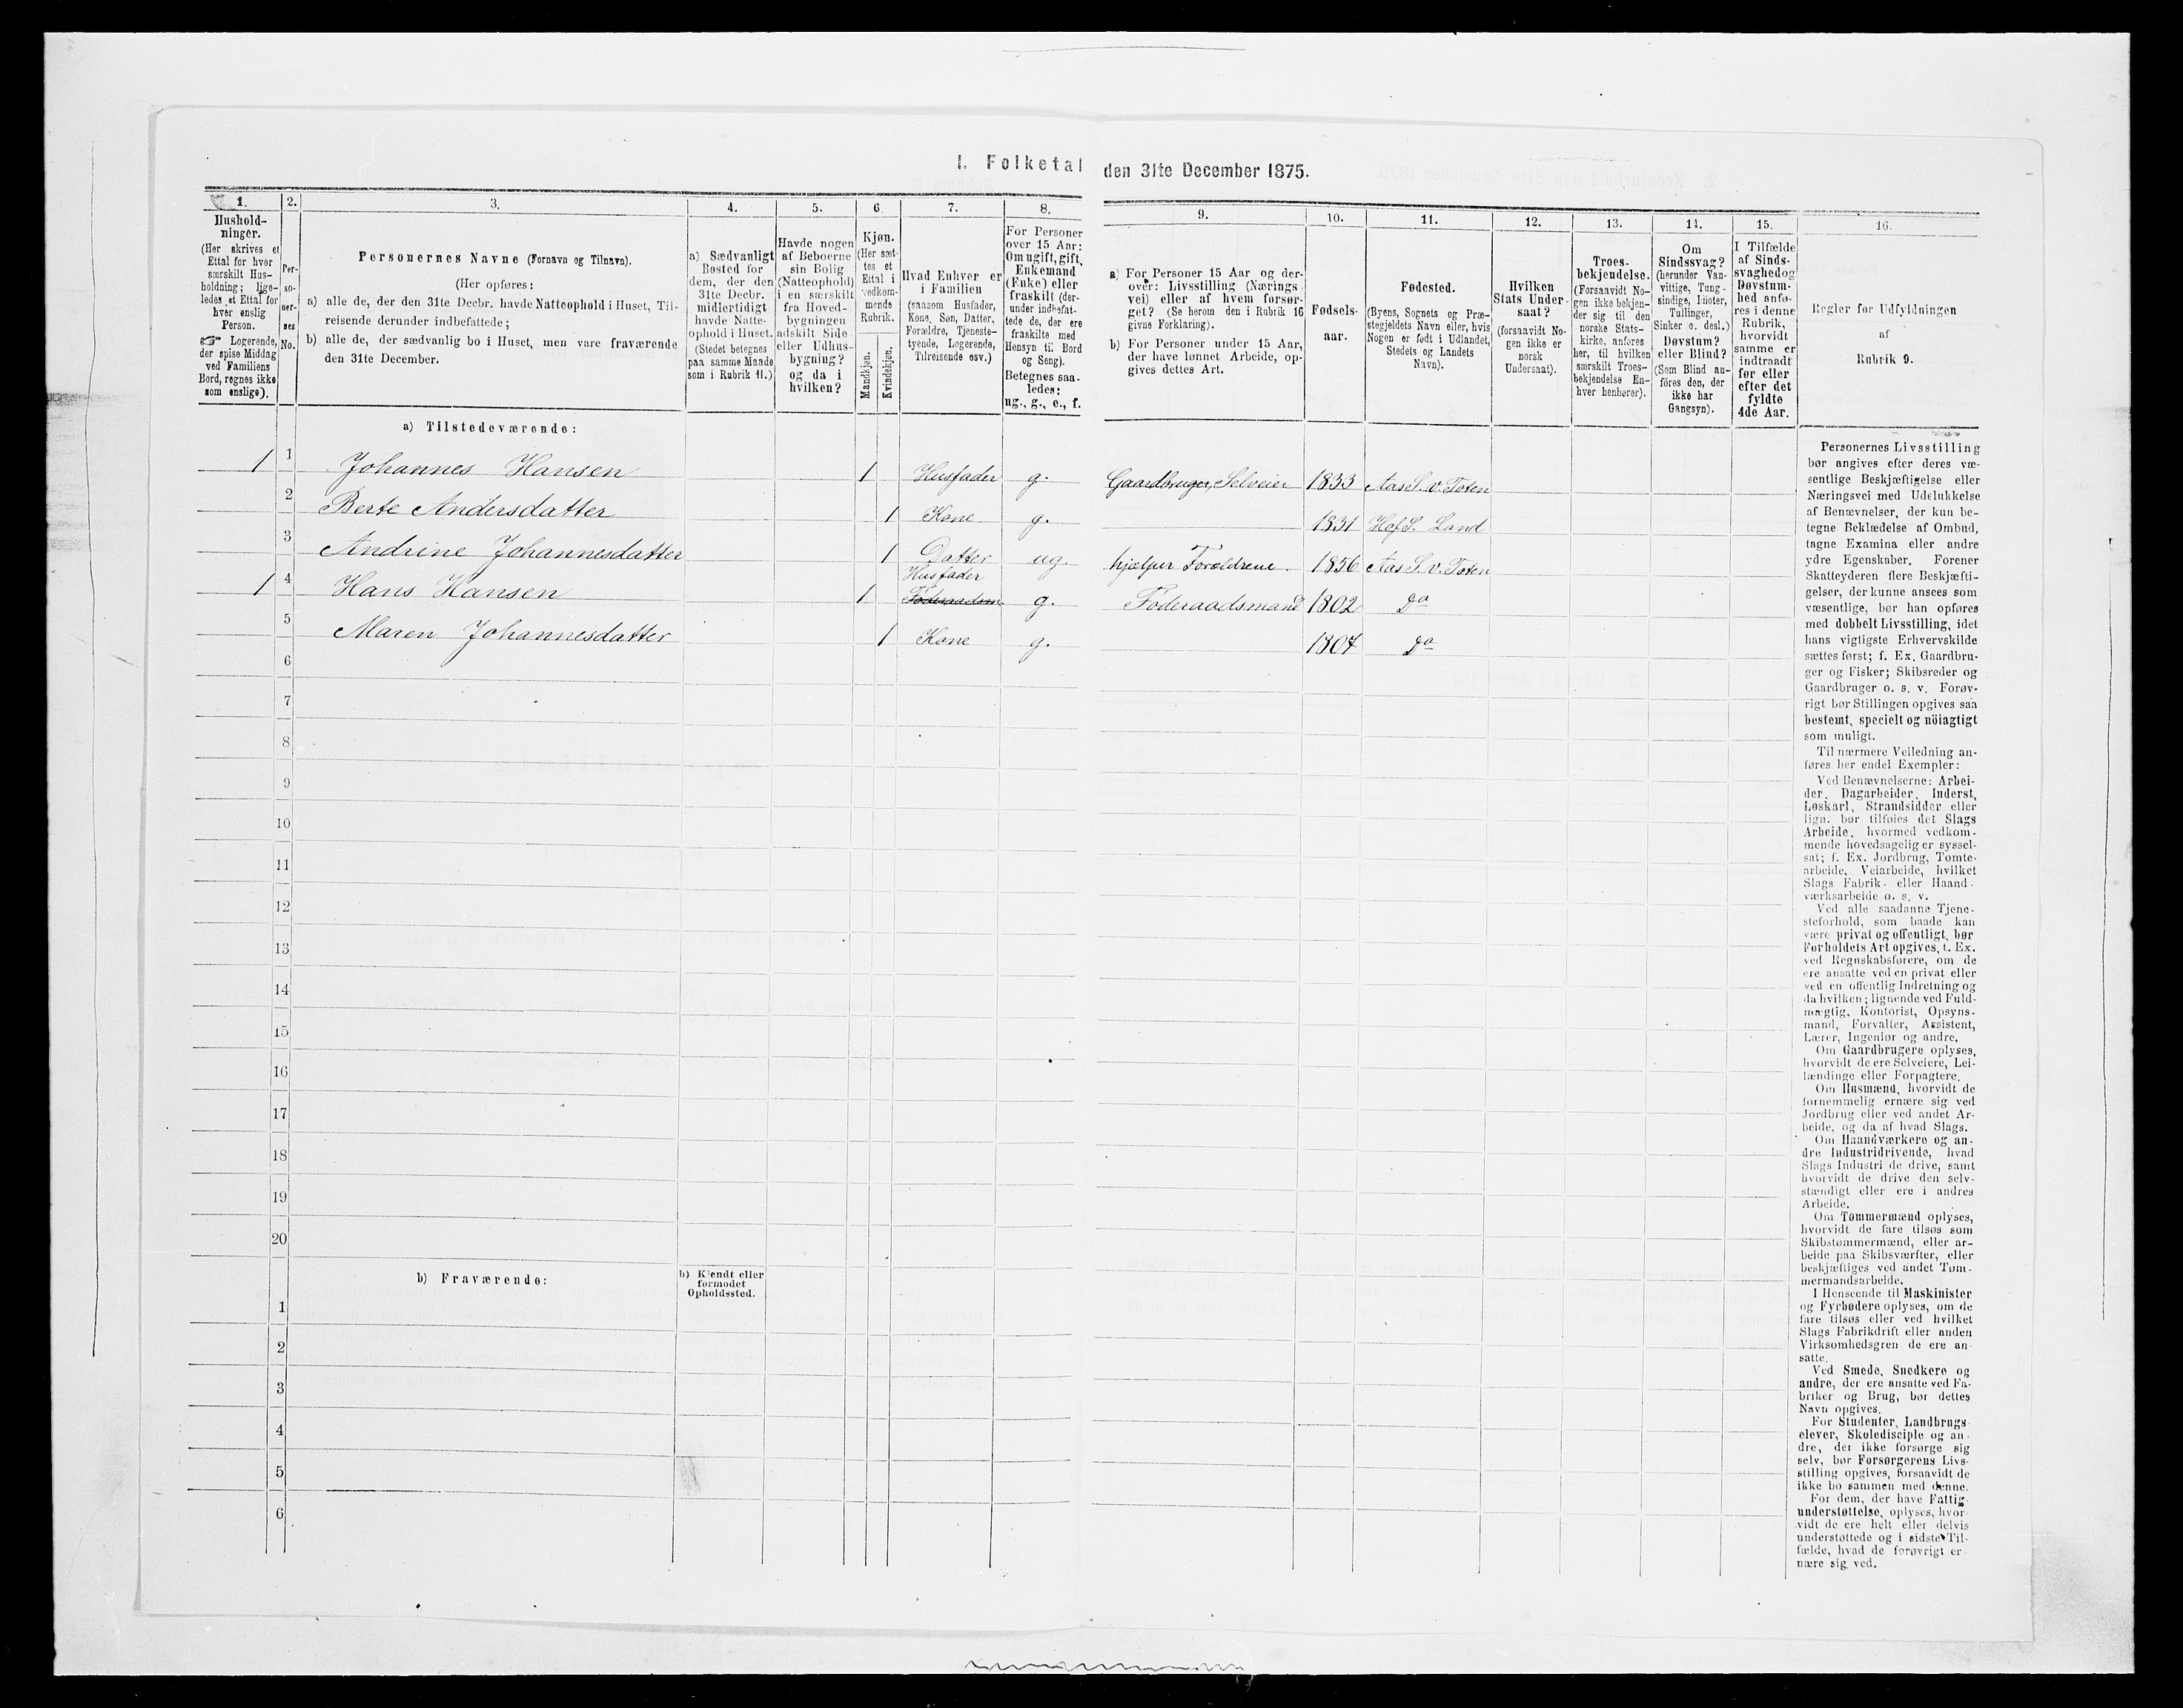 I. Folketal den 31te December 1875.
1.
Hushold-
ninger.
(Her skrives et
Ettal for hver
særskilt Hus-
holdning; lige-
ledes et Ettal for
hver enslig
Person.
☞ Logerende,
der spise Middag
ved Familiens
Bord, regnes ikke
som enslige).
2.
Per-
so-
ner-
nes
No.
3.
Personernes Navne (Fornavn og Tilnavn).
(Her opføres:
a) alle de, der den 31te Decbr. havde Natteophold i Huset, Til-
reisende derunder indbefattede;
b) alle de, der sædvanlig bo i Huset, men vare fraværende
den 31te December.
4.
a) Sædvanligt
Bosted for
dem, der den
31te Decbr.
midlertidigt
havde Natte-
ophold i Huset.
(Stedet betegnes
paa samme Maade
som i Rubrik 11.)
5.
Havde nogen
af Beboerne
sin Bolig
(Natteophold)
i en særskilt
fra Hoved-
bygningen
adskilt Side-
eller Udhus-
bygning?
og da i
hvilken?
6.
Kjøn.
(Her sæt-
tes et
Ettal i
vedkom-
mende
Rubrik.
Mandkjøn.
Kvindekjøn.
7.
Hvad Enhver er
i Familien
(saasom Husfader,
Kone, Søn, Datter,
Forældre, Tjeneste-
tyende, Logerende,
Tilreisende osv.)
8.
For Personer
over 15 Aar:
Om ugift, gift,
Enkemand
(Enke) eller
fraskilt (der-
under indbefat-
tede de, der ere
fraskilte med
Hensyn til Bord
og Seng).
Betegnes saa-
ledes:
ug., g., e., f.
9.
a) For Personer 15 Aar og der-
over: Livsstilling (Nærings-
vei) eller af hvem forsør-
get? (Se herom den i Rubrik 16
givne Forklaring).
b) For Personer under 15 Aar,
der have lønnet Arbeide, op-
gives dettes Art.
10.
Fødsels-
aar.
11.
Fødested.
(Byens, Sognets og Præ-
stegjeldets Navn eller, hvis
Nogen er født i Udlandet,
Stedets og Landets
Navn).
12.
Hvilken
Stats Under-
saat?
(forsaavidt No-
gen ikke er
norsk
Undersaat).
13.
Troes-
bekjendelse.
(Forsaavidt No-
gen ikke bekjen-
der sig til den
norske Stats-
kirke, anføres
her, til hvilken
særskilt Troes-
bekjendelse En-
hver henhører).
14.
Om
Sindssvag?
(herunder Van-
vittige, Tung-
sindige, Idioter,
Tullinger,
Sinker o. desl.)
Døvstum?
eller Blind?
(Som Blind an-
föres den, der
ikke har
Gangsyn).
15.
I Tilfælde
af Sinds-
svaghed og
Døvstum-
hed anfø-
res i denne
Rubrik,
hvorvidt
samme er
indtraadt
før eller
efter det
fyldte
4de Aar.
16.
Regler for Udfyldningen
af
Rubrik 9.
a) Tilstedeværende:
1 1 Johannes Hansen 1 Husfader g. Gaardbruger, Selveier 1833 Aas S. v. Toten
2 Berte Andersdatter 1 Kone g. 1831 Hof S. Land
3 Andrine Johannesdatter 1 Datter ug. hjælper Forældrene. 1856 Aas S. v. Toten
Husfader
1 4 Hans Hansen 1 Føderaadsm. g. Føderaadsmand 1802 Do
5 Maren Johannesdatter 1 Kone g. 1804 Do
6
7
8
9
10
11
12
13
14
15
16
17
18
19
20
b) Fraværende:
b) Kjendt eller
formodet
Opholdssted.
1
2
3
4
5
6
Personernes Livsstilling
bør angives efter deres væ-
sentlige Beskjæftigelse eller
Næringsvei med Udelukkelse
af Benævnelser, der kun be-
tegne Beklædelse af Ombud,
tagne Examina eller andre
ydre Egenskaber. Forener
Skatteyderen flere Beskjæfti-
gelser, der kunne ansees som
væsentlige, bør han opføres
med dobbelt Livsstilling, idet
hans vigtigste Erhvervskilde
sættes først; f. Ex. Gaardbru-
ger og Fisker; Skibsreder og
Gaardbruger o. s. v. Forøv-
rigt bør Stillingen opgives saa
bestemt, specielt og nöiagtigt
som muligt.
Til nærmere Veiledning an-
føres her endel Exempler:
Ved Benævnelserne: Arbei-
der, Dagarbeider, Inderst,
Løskarl, Strandsidder eller
lign. bør tilføies det Slags
Arbeide, hvormed vedkom-
mende hovedsagelig er syssel-
sat; f. Ex. Jordbrug, Tomte-
arbeide, Veiarbeide, hvilket
Slags Fabrik- eller Haand-
værksarbeide o. s. v.
Ved alle saadanne Tjene-
steforhold, som baade kan
være privat og offentligt, bør
Forholdets Art opgives, t. Ex.
ved Regnskabsførere, om de
ere ansatte ved en privat eller
ved en offentlig Indretning og
da hvilken; lignende ved Fuld-
mægtig, Kontorist, Opsyns-
mand, Forvalter, Assistent,
Lærer, Ingeniør og andre.
Om Gaardbrugere oplyses,
hvorvidt de ere Selveiere, Lei-
lændinge eller Forpagtere.
Om Husmænd, hvorvidt de
fornemmelig ernære sig ved
Jordbrug eller ved andet Ar-
beide, og da af hvad Slags.
Om Haandværkere og an-
dre Industridrivende, hvad
Slags Industri de drive, samt
hvorvidt de drive den selv-
stændigt eller ere i andres
Arbeide.
Om Tømmermænd oplyses,
hvorvidt de fare tilsøs som
Skibstømmermænd, eller ar-
beide paa Skibsværfter, eller
beskjæftiges ved andet Tøm-
mermandsarbeide.
I Henseende til Maskinister
og Fyrbødere oplyses, om de
fare tilsøs eller ved hvilket
Slags Fabrikdrift eller anden
Virksomhedsgren de ere an-
satte.
Ved Smede, Snedkere og
andre, der ere ansatte ved Fa-
briker og Brug, bør dettes
Navn opgives.
For Studenter, Landbrugs-
elever, Skoledisciple og an-
dre, der ikke forsørge sig
selv, bør Forsørgerens Livs-
stilling opgives, forsaavidt de
ikke bo sammen med denne.
For dem, der have Fattig-
understøttelse, oplyses, hvor-
vidt de ere helt eller delvis
understøttede og i sidste Til-
fælde, hvad de forøvrigt er-
nære sig ved.